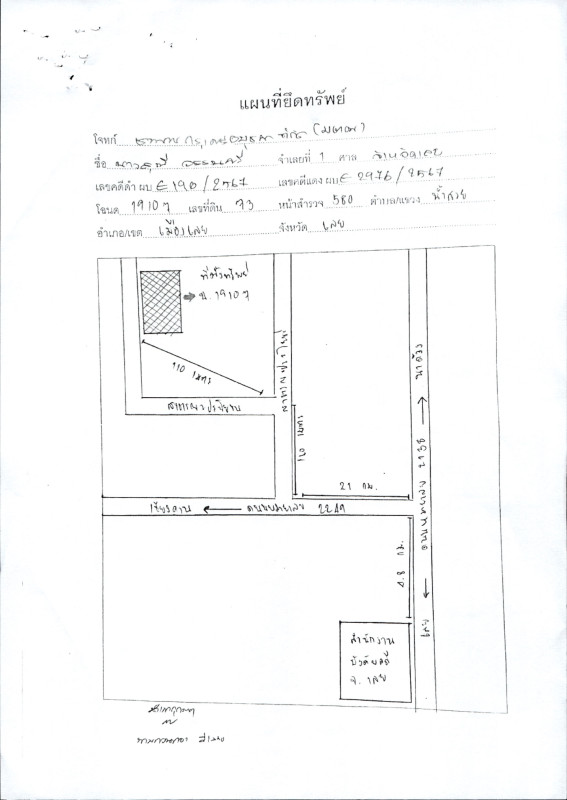 แผนที่ยึดทรัพย์
โจทก์ ธนาคาร กรุงศรีอยุธยา จำกัด (มหาชน)
ชื่อ จำเลยที่ 1 ศาล จังหวัดเลย
เลขคดีดำ ผบ E 190 / 2567 เลขคดีแดง ผบ E 2976 / 2567
โฉนด 19107 เลขที่ดิน 73 หน้าสำรวจ 580 ตำบล/แขวง น้ำสวย
อำเภอ/เขต เมืองเลย จังหวัด เลย
ที่ตั้งทรัพย์
ฉ. 19107
110 เมตร
สาธารณประโยชน์
สาธารณประโยชน์
120 เมตร
21 กม.
นาด้วง
ถนนหมายเลข 2138
เลย
เชียงคาน ถนนหมายเลข 2249
กม.
สำนักงาน
บังคับคดี
จ. เลย